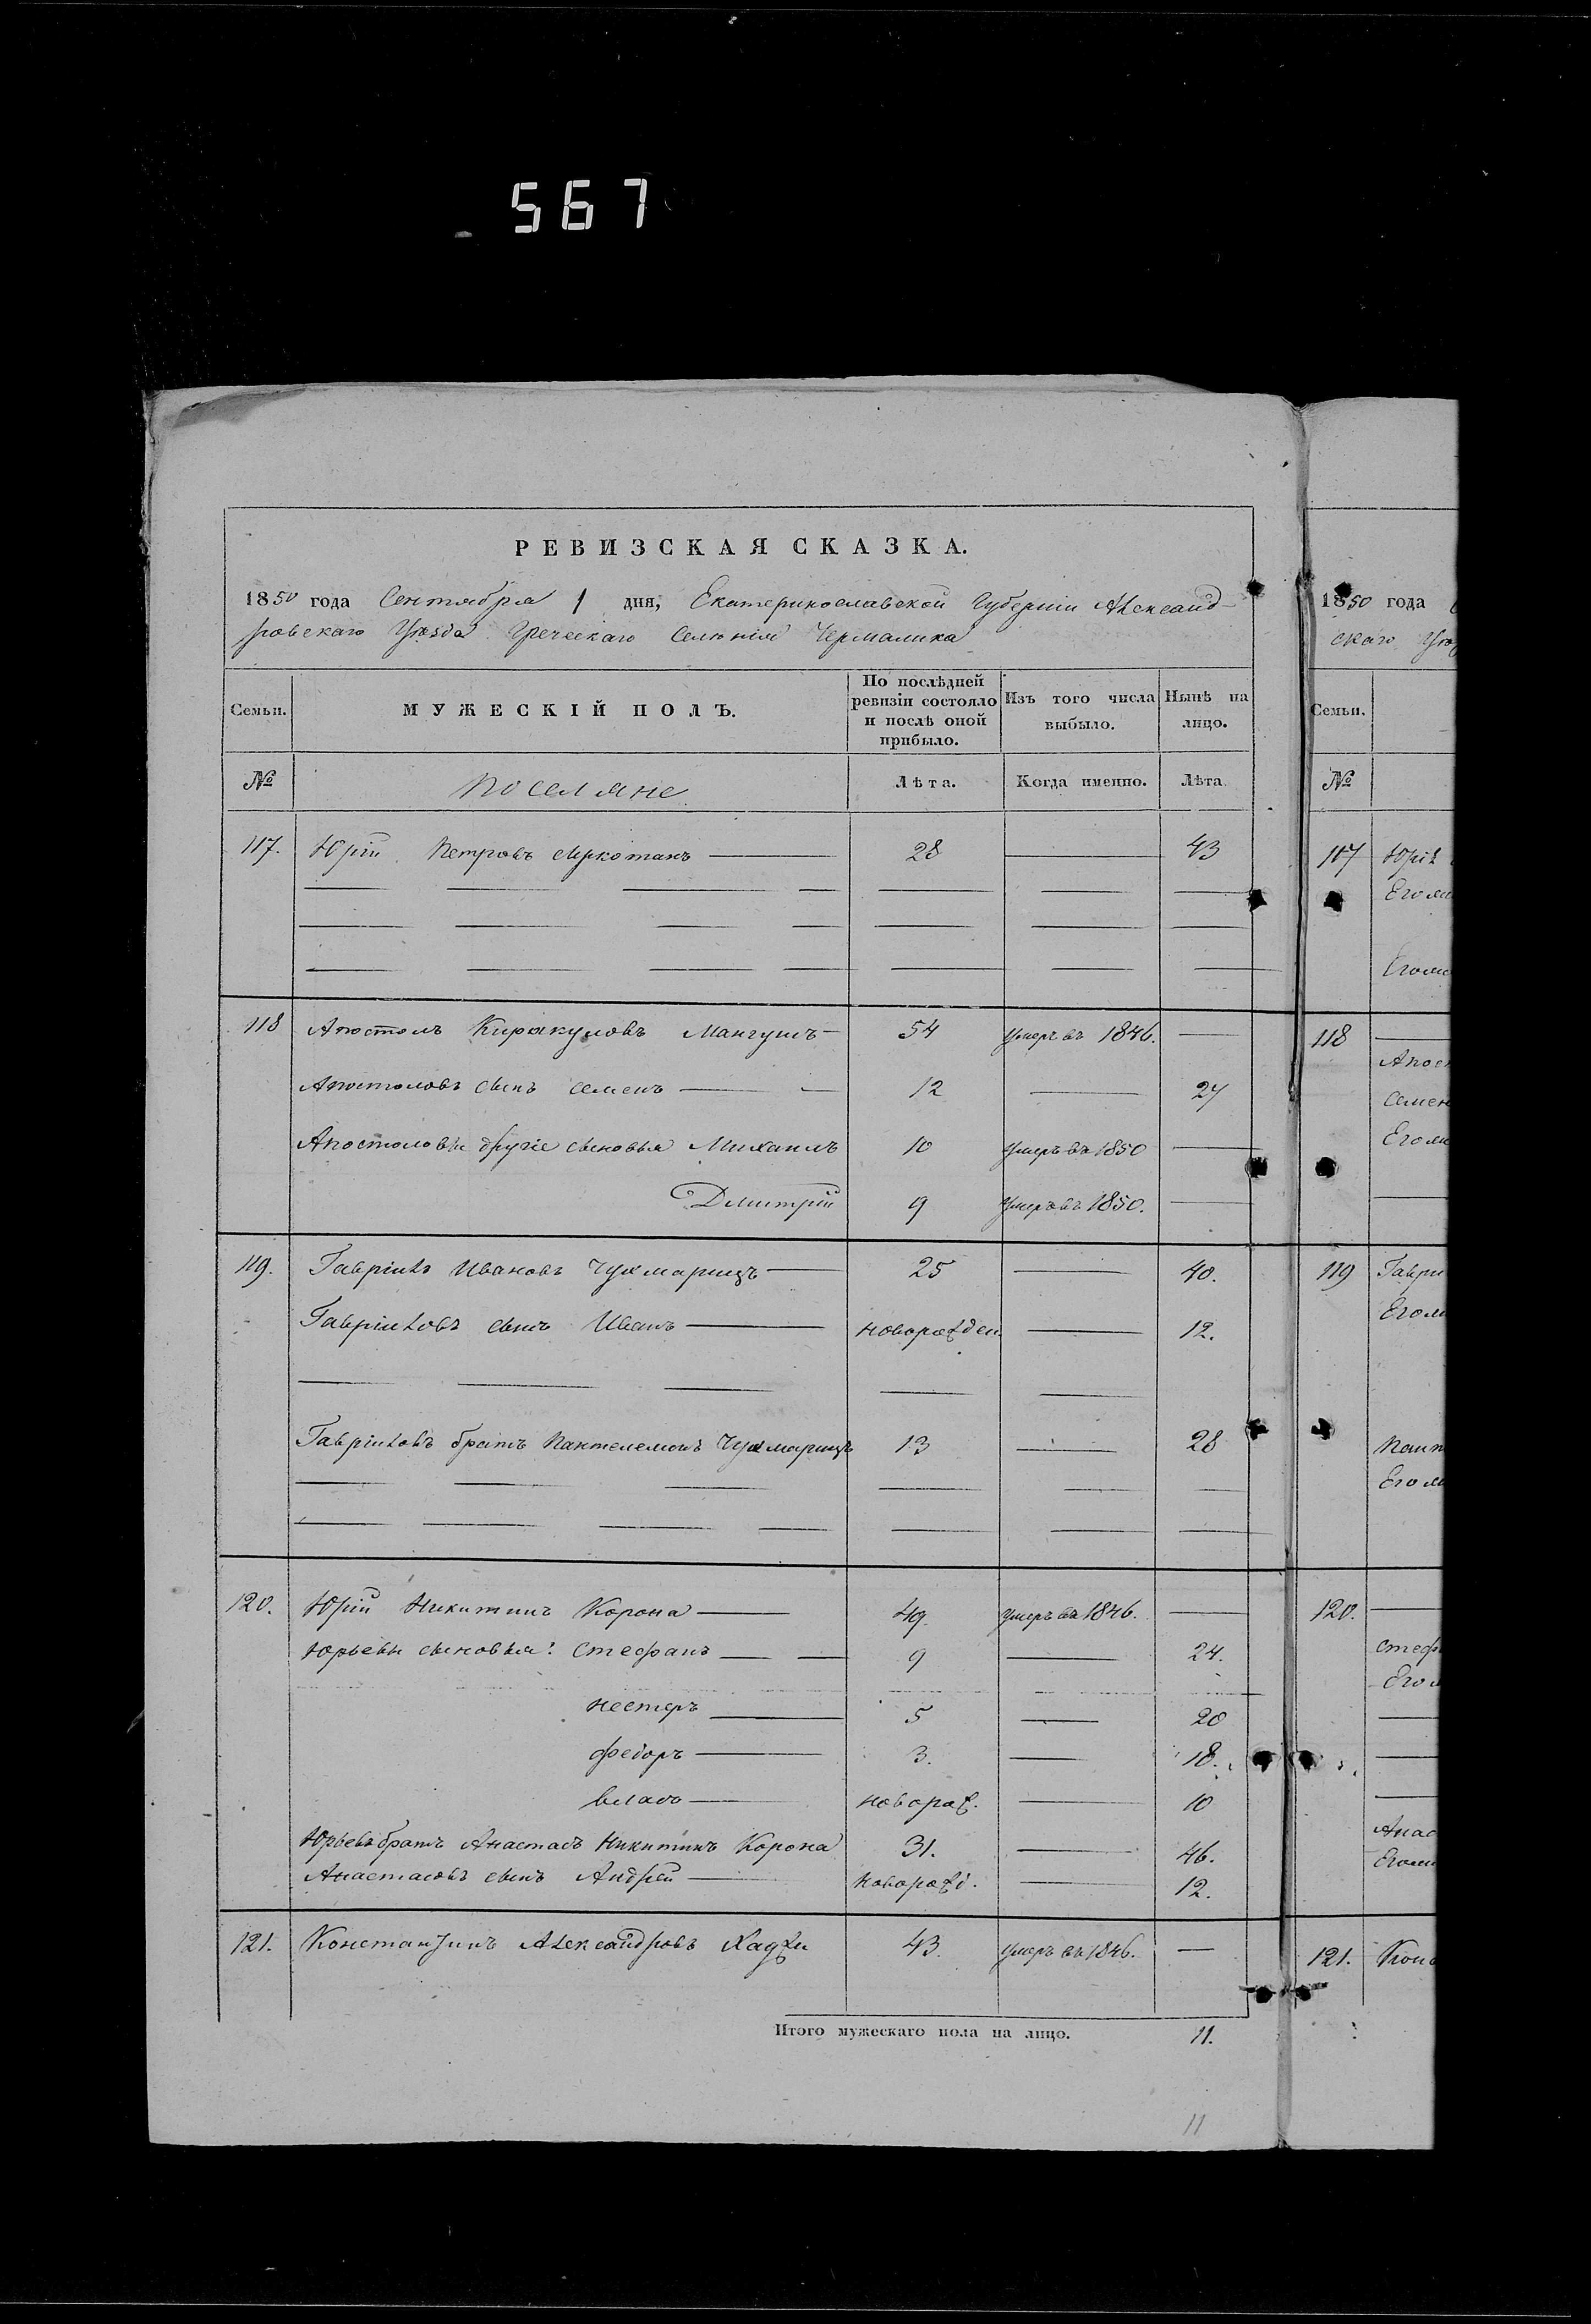 567
РЕВИЗСКАЯ СКАЗКА.
1850 года Сентября 1 дня, Екатеринославской Губерніи Александ-
ровскаго Уѣзда Греческаго Селенія Чермалика
Семьи. МУЖЕСКІЙ ПОЛЪ. По послѣдней ревизіи состояло и послѣ оной прибыло. Изъ того числа выбыло. Нынѣ на лицо.
№ Поселяне Лѣта. Когда именно. Лѣта
117. Юрій Петровъ 28 43
118 Апостолъ Кирьякуловъ Мангушъ 54 умеръ въ 1846.
Апостоловъ сынъ Семенъ 12 27
Апостоловы другіе сыновья Михаилъ 10 умеръ въ 1850
Дмитрій 9 умеръ въ 1850.
119. Гавріилъ Ивановъ Чухмарицъ 25 40.
Гавріиловъ сынъ Иванъ новорожден 12.
Гавріиловъ братъ Пантелемонъ Чухмарицъ 13 28
120. Юрій Никитинъ Корона 49. умеръ въ 1846.
Юрьевы сыновья: Стефанъ 9 24.
Нестеръ 5 20
Федоръ 3. 18.
Власъ новорож. 10
Юрьевъ братъ Анастасъ Никитинъ Корона 31. 46.
Анастасовъ сынъ Андрей новорожд. 12.
121. Константинъ Александровъ Хаджи 43. умеръ въ 1846.
Итого мужескаго пола на лицо. 11.
11
1850 года
скаго Уѣз
Семьи.
№
117 Юрія
Его
Его
118
Апос
Семен
Его
119 Гаври
Его
Пант
Его
120.
Стеф
Его
Анас
Его
121. Конс